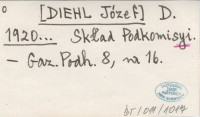 o
[DIEHL Józef] D.
1920... Skład Podkomisyi.
– Gaz. Podh. 8, nr 16.